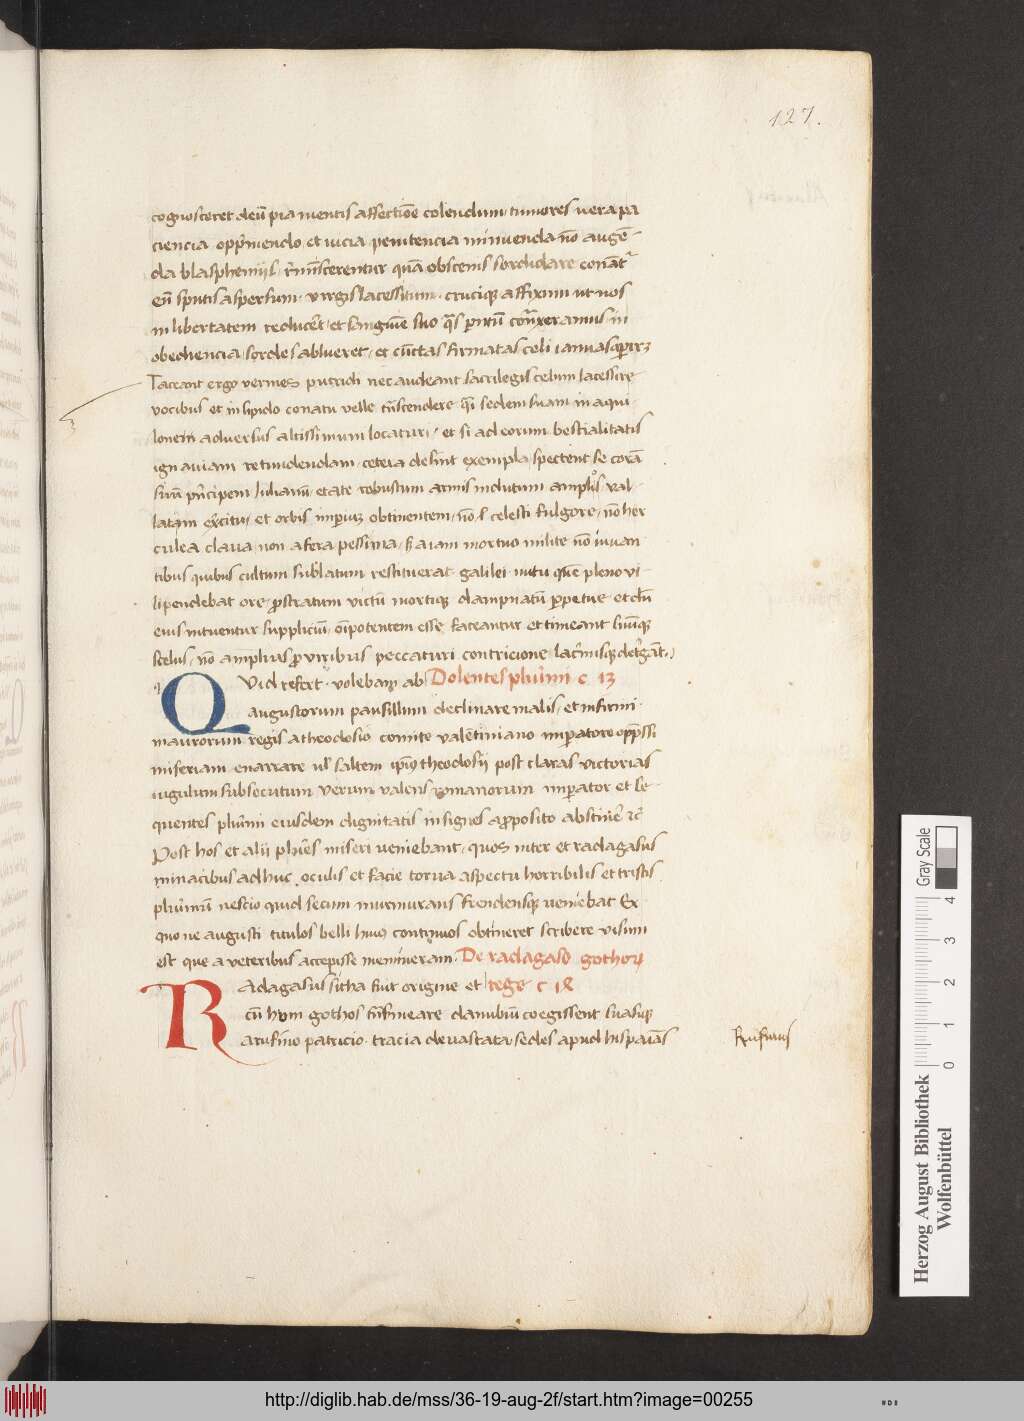 127.
cognosceret deū pia mentis affectiōe colendum, tumores vera pa
ciencia oppͥmendo, et iucia penitencia minuenda nō augē-
da blasphemijs, quā obscenis sordidare conātͬ
eū sputis aspersum, virgis lacessitum, cruciqꝫ affixum ut nos
in libertatem et sanguīe suo in
obediencia sordes ablueret, et cūctas firmatas celi ianuas
Taceant ergo vermes putridi nec audeant sacrilegis celum lacessire
vocibus et insipido conatu velle sedem suam in aqui-
lonem adversus altissimum locaturi, et si ad eorum bestialitatis
ignaviam retundendam, cetera desint exempla, spectent se corā
suū pͥncipem Iulianū, etate robustum armis indutum val-
latam et orbis obtinentem, nō celesti fulgore, nō her
culea clava, non a fera pessima, a iam mortuo milite nō iuvan
tibus quibus cultum sublatum restituerat, galilei nutu quē pleno vi-
lipendebat ore, ꝓstratum victū mortuqꝫ dampnatū et dū
eius intuentur suppliciū, oīpotentem esse fateantur et timeant
scelus, nō amplius ꝓ viribus peccaturi contricione
Quid refert, volebam ab Dolentes plurimi c 13
augustorum pausillum declinare malis, et infirmi
maurorum regis a theodosio comite valētiniano
miseriam enarrare vel saltem theodosij post claras victorias
iugulum subsecutum verum valens romanorum imperator et se-
quentes plurimi eiusdem dignitatis insignes a ꝓposito
Post hos et alij plures miseri veniebant, quos inter et radagasus
minacibus adhuc oculis et facie torva aspectu horribilis et tristis
plurimū nescio quid secum murmurans frendensqꝫ veniebat Ex
quo ne augusti titulos belli huius continuos obtineret scribere visum
est que a veteribus accepisse memineram. De radagaso gothoꝝ
Radagasus sitha fuit origine et rege c 14
cū gothos danubiū coegissent suasuqꝫ
a rufino patricio, tracia devastata, sedes apud hispanias
Rufinus
Herzog August Bibliothek
Wolfenbüttel
Gray Scale
0 1 2 3 4
http://diglib.hab.de/mss/36-19-aug-2f/start.htm?image=00255